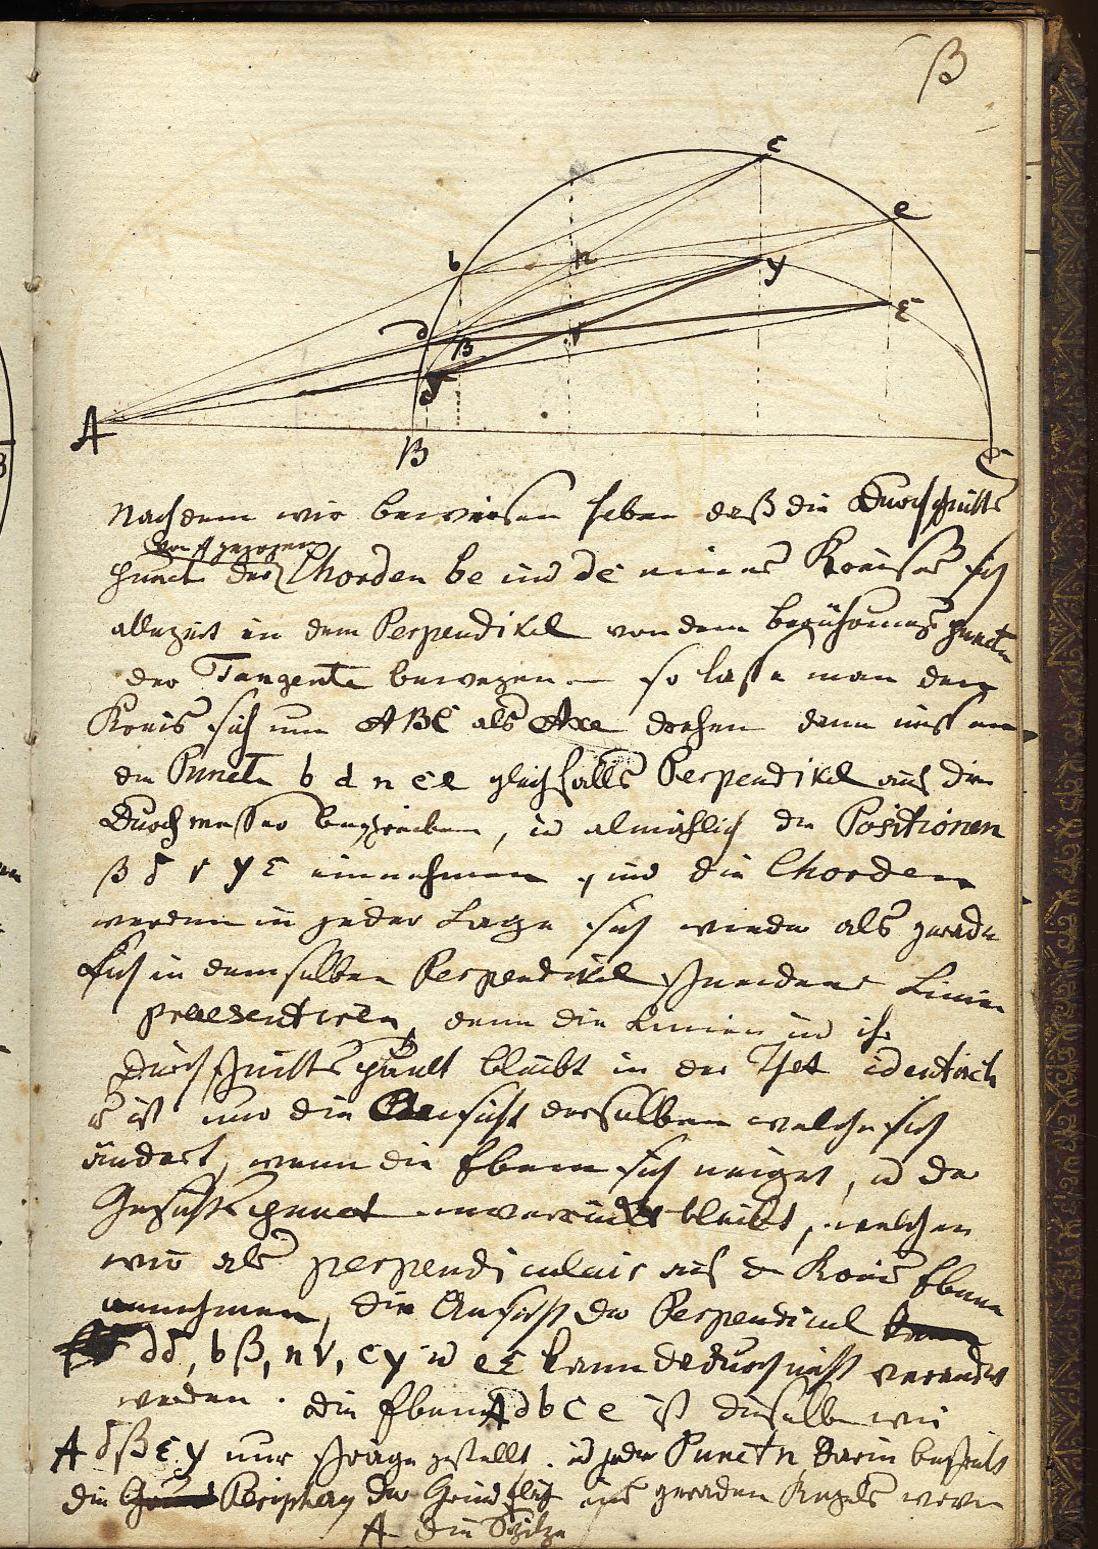 β
c
e
b
n
y
d
ε
β
ν
δ
A
B
C
Nachdem wir bewiesen haben daß die Durchschnitts
von A gezogenen
puncte der Chorden be und dc eines Kreises sich
allezeit in dem Perpendikel von dem berührungs puncte
der Tangente bewegen – so lasse man den
Kreis sich um ABC als Axe drehen dann müssen
die Puncte b d n c e gleichfalls Perpendikel auf die
Durchmesser beschreiben, u almählich die Positionen
β δ ν γ ε einnehmen, und die Chorden
werden in jeder Lage sich wieder als gerade
sich in demselben Perpendikel schneidende Linien
praesentiren, denn die Linien und ihr
Durchschnittspunkt bleibt in der That identisch
es ist nur die Ansicht derselben welche sich
ändert, wenn die Ebene sich neiget, u der
Gesichtspunct unverrückt bleibt, welchen
wir als perpendiculair auf die Kreis Ebene
annehmen, die Ansicht der Perpendicul
dδ, bβ, nν, cγ u eε kann dadurch nicht verändert
werden. die Ebene A d b c e ist dieselbe wie
A δ β ε γ nur schräge gestellt. u jeder Punct n darin beschreibt
die Periphery der Grundfläche eines geraden Kegels wovon
A die Spitze